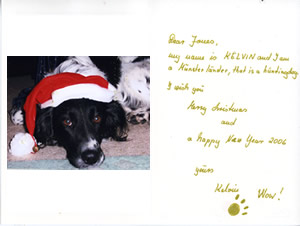 Dear James,
my name is KELVIN and I am
a Münsterländer, that is a huntingdog
I wish you
Merry Christmas
and
a happy New Year 2006
yours
Kelvin Wow!